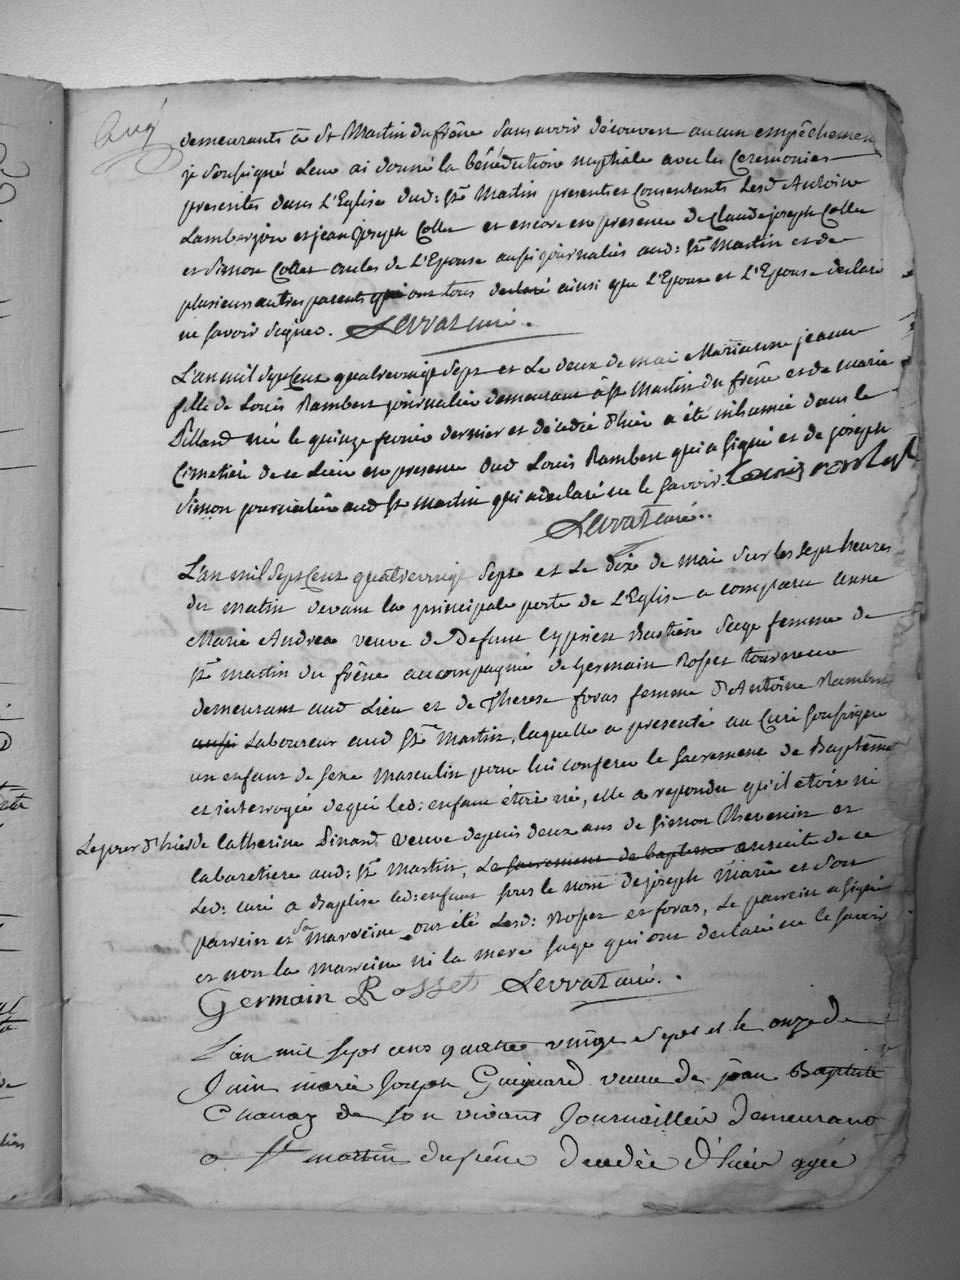 demeurants a St Martin du frêne sans avoir découvert aucun empêchement
je soussigné leur ai donné la bénédiction nuptiale avec les Ceremonies
prescrites dans L'Eglise dud: St Martin presents et Consentants Lesd Antoine
et jean joseph Collet et encore en presence de Claude joseph Collet
et Simon Collet oncles de L'Epouse aussi journaliers aud: St Martin et de
plusieurs autres parents qui ont tous declaré ainsi que L'Epoux et L'Epouse declaré
ne Savoir Signer. Levrat curé.
L'an mil Sept Cent quatrevingt Sept et Le deux de mai Marianne jeanne
fille de Louis Rambert journalier demeurant a St Martin du frêne et de marie
Billard née le quinze fevrier dernier et décédée d'hier a été inhumée dans le
Cimetiére de ce Lieu en presence dud Louis Rambert qui a Signé et de joseph
Simon journalier aud St martin qui a declaré ne le Savoir. Louis
Levrat curé.
L'an mil Sept Cent quatrevingt Sept et Le dix de mai Sur les Sept heures
du matin devant la principale porte de L'Eglise a comparu anne
Marie Andrea veuve de Defunt Cyprien Bastien Sage femme de
St martin du frêne accompagnée de Germain Rosset tourneur
demeurant aud Lieu et de Therese foras femme d'Antoine Rambert
aussi Laboureur aud St Martin, laquelle a presenté au Curé Soussigné
un enfant de Sexe Masculin pour lui conferer le Sacrement de Baptême
et interrogée de qui led: enfant étoit né, elle a repondu qu'il étoit né
Le jour d'hier de Catherine Pinard veuve depuis deux ans de Simon Thevenin et
Cabaretiere aud: St Martin, Le Sacrement de baptême ensuite de ce
Led: curé a Baptisé led: enfant sous le nom de joseph Marie et Son
parrein et Sa marreine ont été Lesd: Rosset et foras, Le parrein a Signé
et non la marreine ni la mere Sage qui ont declaré ne le Savoir
Germain Rosset Levrat curé.
L'an mil sept cens quatre vingt sept et le onze de
Juin marie Joseph Guignard veuve de jean Baptiste
Chanay de son vivant Journaillier Demeurant
a St martin du frêne Decedée D'hier agée